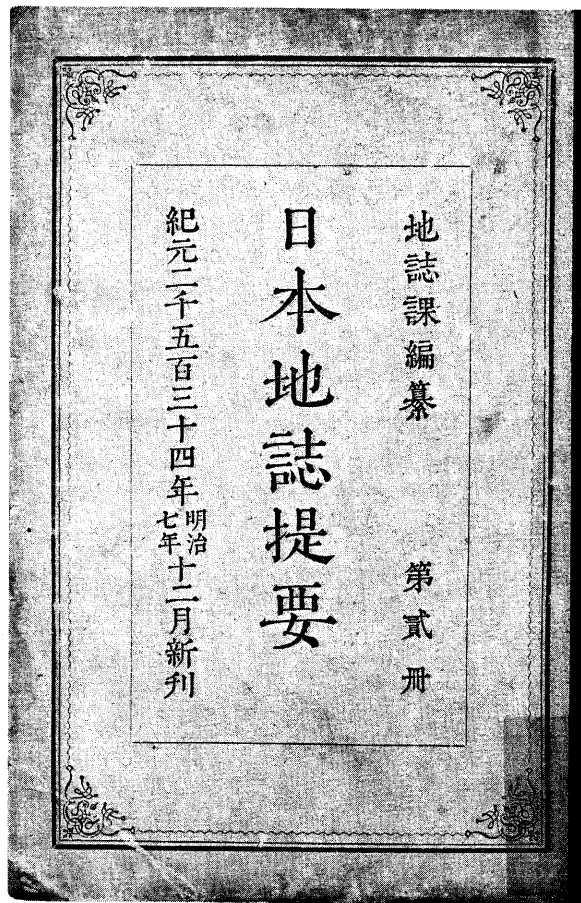 地誌課編纂　第貳冊
日本地誌提要
紀元二千五百三十四年明治七年十二月新刊